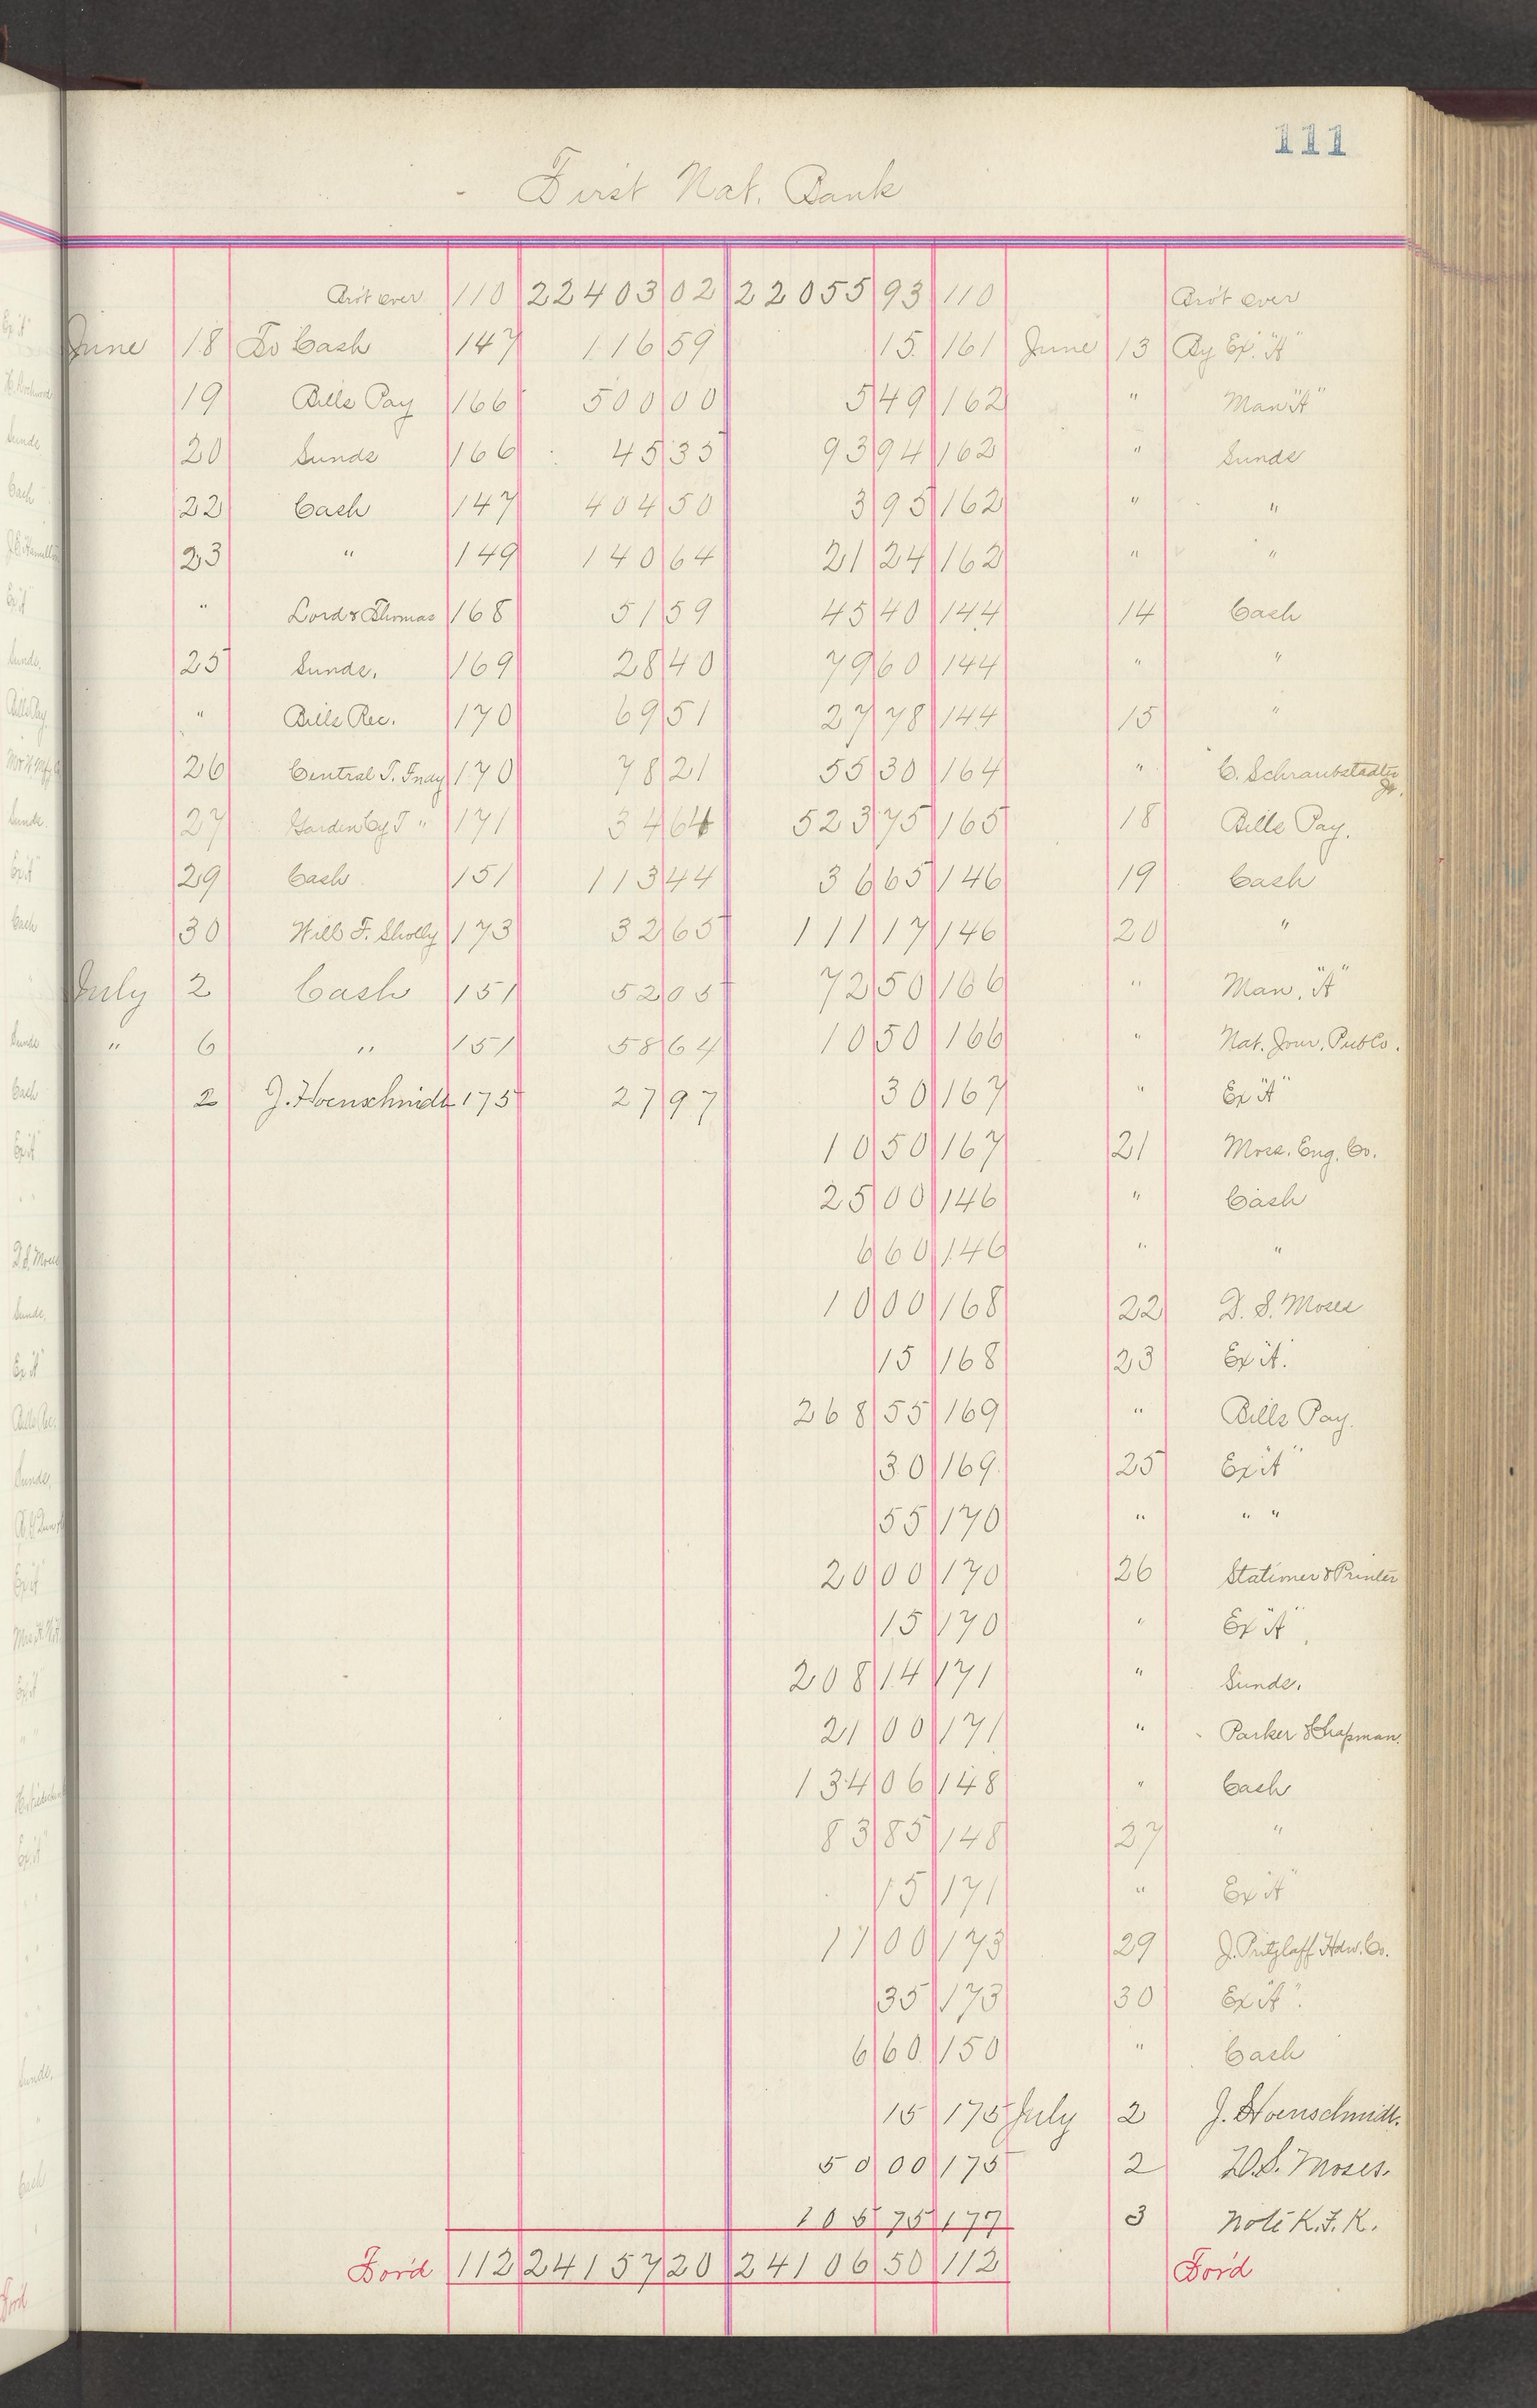 111
First Nat. Bank
Bro't over 110 22403 02 22055 93 110 Bro't over
June 18 To Cash 147 116 59 15 161 June 13 By Ex. "A"
19 Bills Pay 166 500 00 5 49 162 " Man "A"
20 Sunds 166 45 35 93 94 162 " Sunds
22 Cash 147 404 50 3 95 162 " "
23 " 149 140 64 21 24 162 " "
" Lord & Thomas 168 51 59 45 40 144 14 Cash
25 Sunds. 169 28 40 79 60 144 " "
" Bills Rec. 170 69 51 27 78 144 15 "
26 Central T. Fndy 170 78 21 55 30 164 " C. Schraubstadter Jr.
27 Garden Cy T " 171 34 64 523 75 165 18 Bills Pay.
29 Cash 151 113 44 36 65 146 19 Cash
30 Will F. Sholly 173 32 65 111 17 146 20 "
July 2 Cash 151 52 05 72 50 166 " Man. "A"
" 6 " 151 58 64 10 50 166 " Nat. Jour. Pub Co.
2 J. Hoenschmidt 175 27 97 30 167 " Ex "A"
10 50 167 21 Moss. Eng. Co.
25 00 146 " Cash
6 60 146 " "
10 00 168 22 D. S. Moses
15 168 23 Ex "A".
268 55 169 " Bills Pay.
30 169 25 Ex "A"
55 170 " " "
20 00 170 26 Stationer & Printer
15 170 " Ex "A"
208 14 171 " Sunds.
21 00 171 " Parker & Chapman.
134 06 148 " Cash
83 85 148 27 "
15 171 " Ex "A"
11 00 173 29 J. Pritzlaff Hdw. Co.
35 173 30 Ex "A".
6 60 150 " Cash
15 175 July 2 J. Hoenschmidt.
50 00 175 2 D.S. Moses.
106 75 177 3 Note K.F.K.
For'd 112 24157 20 24106 50 112 For'd